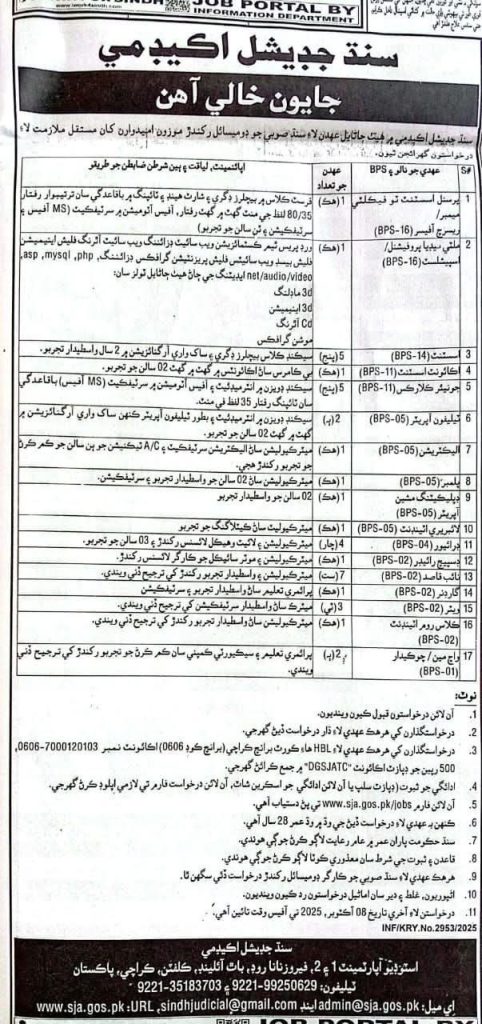 JOB PORTAL BY
INFORMATION DEPARTMENT
سنڌ جڊيشل اڪيڊمي
جايون خالي آهن
سنڌ جڊيشل اڪيڊمي ۾ هيٺ ڄاڻايل عهدن لاءِ سنڌ صوبي جو ڊوميسائل رکندڙ موزون اميدوارن کان مستقل ملازمت لاءِ
درخواستون گهرائجن ٿيون.
S# عهدي جو نالو ۽ BPS عهدن جو تعداد اپائنمينٽ، لياقت ۽ ٻين شرطن ضابطن جو طريقو
1 پرسنل اسسٽنٽ ٽو فيڪلٽي ميمبر/ ريسرچ آفيسر (BPS-16) 1 (هڪ) فرسٽ ڪلاس ۾ بيچلرز ڊگري ۽ شارٽ هينڊ ۽ ٽائپنگ ۾ باقاعدگي سان ترتيبوار رفتار
80/35 لفظ في منٽ گهٽ ۾ گهٽ رفتار، آفيس آٽوميشن ۾ سرٽيفڪيٽ (MS آفيس ۽
سرٽيفڪيشن ۽ ٽن سالن جو تجربو)
2 ملٽي ميڊيا پروفيشنل/ اسپيشلسٽ (BPS-16) 1 (هڪ) ورڊ پريس ٿيم ڪسٽمائزيشن ويب سائيٽ ڊزائننگ ويب سائيٽ آٿرنگ فليش اينيميشن
فليش بيسڊ ويب سائيٽس فليش پريزنٽيشن گرافڪس ڊزائننگ, asp, mysql, php,
net/audio/video ايڊيٽنگ جي ڄاڻ هيٺ ڄاڻايل ٽولز سان:
3d ماڊلنگ
3d اينيميشن
Cd آٿرنگ
موشن گرافڪس
3 اسسٽنٽ (BPS-14) 5 (پنج) سيڪنڊ ڪلاس بيچلرز ڊگري ۽ ساک واري آرگنائزيشن ۾ 2 سال واسطيدار تجربو.
4 اڪائونٽ اسسٽنٽ (BPS-11) 1 (هڪ) بي ڪامرس ساڻ اڪائونٽس ۾ گهٽ ۾ گهٽ 02 سالن جو تجربو.
5 جونيئر ڪلارڪس (BPS-11) 5 (پنج) سيڪنڊ ڊويزن ۾ انٽرميڊيئيٽ ۽ آفيس آٽوميشن ۾ سرٽيفڪيٽ (MS آفيس) باقاعدگي
سان ٽائپنگ رفتار 35 لفظ في منٽ.
6 ٽيليفون آپريٽر (BPS-05) 2 (ٻه) سيڪنڊ ڊويزن ۾ انٽرميڊيئيٽ ۽ بطور ٽيليفون آپريٽر ڪنهن ساک واري آرگنائزيشن ۾
گهٽ ۾ گهٽ 02 سالن جو تجربو.
7 اليڪٽريشن (BPS-05) 1 (هڪ) ميٽرڪيوليشن ساڻ اليڪٽريشن سرٽيفڪيٽ ۽ A/C ٽيڪنيشن جو ٻن سالن جو ڪم ڪرڻ
جو تجربو رکندڙ هجي.
8 پلمبر (BPS-05) 1 (هڪ) ميٽرڪيوليشن ساڻ 02 سالن جو واسطيدار تجربو ۽ سرٽيفڪيشن.
9 ڊپليڪيٽنگ مشين آپريٽر (BPS-05) 1 (هڪ) 02 سالن جو واسطيدار تجربو
10 لائبريري اٽينڊنٽ (BPS-05) 1 (هڪ) ميٽرڪيوليٽ ساڻ ڪيٽلاگنگ جو تجربو
11 ڊرائيور (BPS-04) 4 (چار) ميٽرڪيوليشن ۽ لائيٽ وهيڪل لائسنس رکندڙ ۽ 03 سالن جو تجربو.
12 ڊسپيچ رائيڊر (BPS-02) 1 (هڪ) ميٽرڪيوليشن ۽ موٽر سائيڪل جو ڪارگر لائسنس رکندڙ.
13 نائب قاصد (BPS-02) 7 (ست) ميٽرڪيوليشن ۽ واسطيدار تجربو رکندڙ کي ترجيح ڏني ويندي.
14 گارڊنر (BPS-02) 1 (هڪ) پرائمري تعليم ساڻ واسطيدار تجربو ۽ سرٽيفڪيشن
15 ويٽر (BPS-02) 3 (ٽي) ميٽرڪ ساڻ واسطيدار سرٽيفڪيشن کي ترجيح ڏني ويندي.
16 ڪلاس روم اٽينڊنٽ (BPS-02) 1 (هڪ) ميٽرڪيوليشن ساڻ واسطيدار تجربو رکندڙ کي ترجيح ڏني ويندي.
17 واچ مين/ چوڪيدار (BPS-01) 2 (ٻه) پرائمري تعليم ۽ سيڪيورٽي ڪمپني سان ڪم ڪرڻ جو تجربو رکندڙ کي ترجيح ڏني
ويندي.
نوٽ:
1. آن لائن درخواستون قبول ڪيون وينديون.
2. درخواستگذارن کي هرهڪ عهدي لاءِ ڌار درخواست ڏيڻ گهرجي.
3. درخواستگذارن کي هرهڪ عهدي لاءِ HBL هاءِ ڪورٽ برانچ ڪراچي (برانچ ڪوڊ 0606) اڪائونٽ نمبر 0606-7000120103,
500 رپين جو ڊپازٽ اڪائونٽ "DGSJATC" ۾ جمع ڪرائڻ گهرجي.
4. ادائگي جو ثبوت (ڊپازٽ سلپ يا آن لائن ادائگي جو اسڪرين شاٽ، آن لائن درخواست فارم تي لازمي اپلوڊ ڪرڻ گهرجي.
5. آن لائن فارم www.sja.gos.pk/jobs تي پڻ دستياب آهي.
6. ڪنهن به عهدي لاءِ درخواست ڏيڻ جي وڌ ۾ وڌ عمر 28 سال آهي.
7. سنڌ حڪومت پاران عمر ۾ عام رعايت لاڳو ڪرڻ جوڳي هوندي.
8. قاعدن ۽ ثبوت جي شرط سان معذوري ڪوٽا لاڳو ڪرڻ جوڳي هوندي.
9. هرهڪ عهدي لاءِ سنڌ صوبي جو ڪارگر ڊوميسائل رکندڙ درخواست ڏئي سگهن ٿا.
10. اڻپوريون، غلط ۽ دير سان اماڻيل درخواستون رد ڪيون وينديون.
11. درخواستن لاءِ آخري تاريخ 08 آڪٽوبر، 2025 تي آفيس وقت تائين آهي.
INF/KRY.No.2953/2025
سنڌ جڊيشل اڪيڊمي
اسٽوڊيو اپارٽمينٽ 1 ۽ 2، فيروزنانا روڊ، باٿ آئلينڊ، ڪلفٽن، ڪراچي، پاڪستان
ٽيليفون: 9221-99250629 ۽ 9221-35183703
اي ميل: admin@sja.gos.pk اينڊ sindhjudicial@gmail.com, URL: www.sja.gos.pk
JOB PORTAL BY